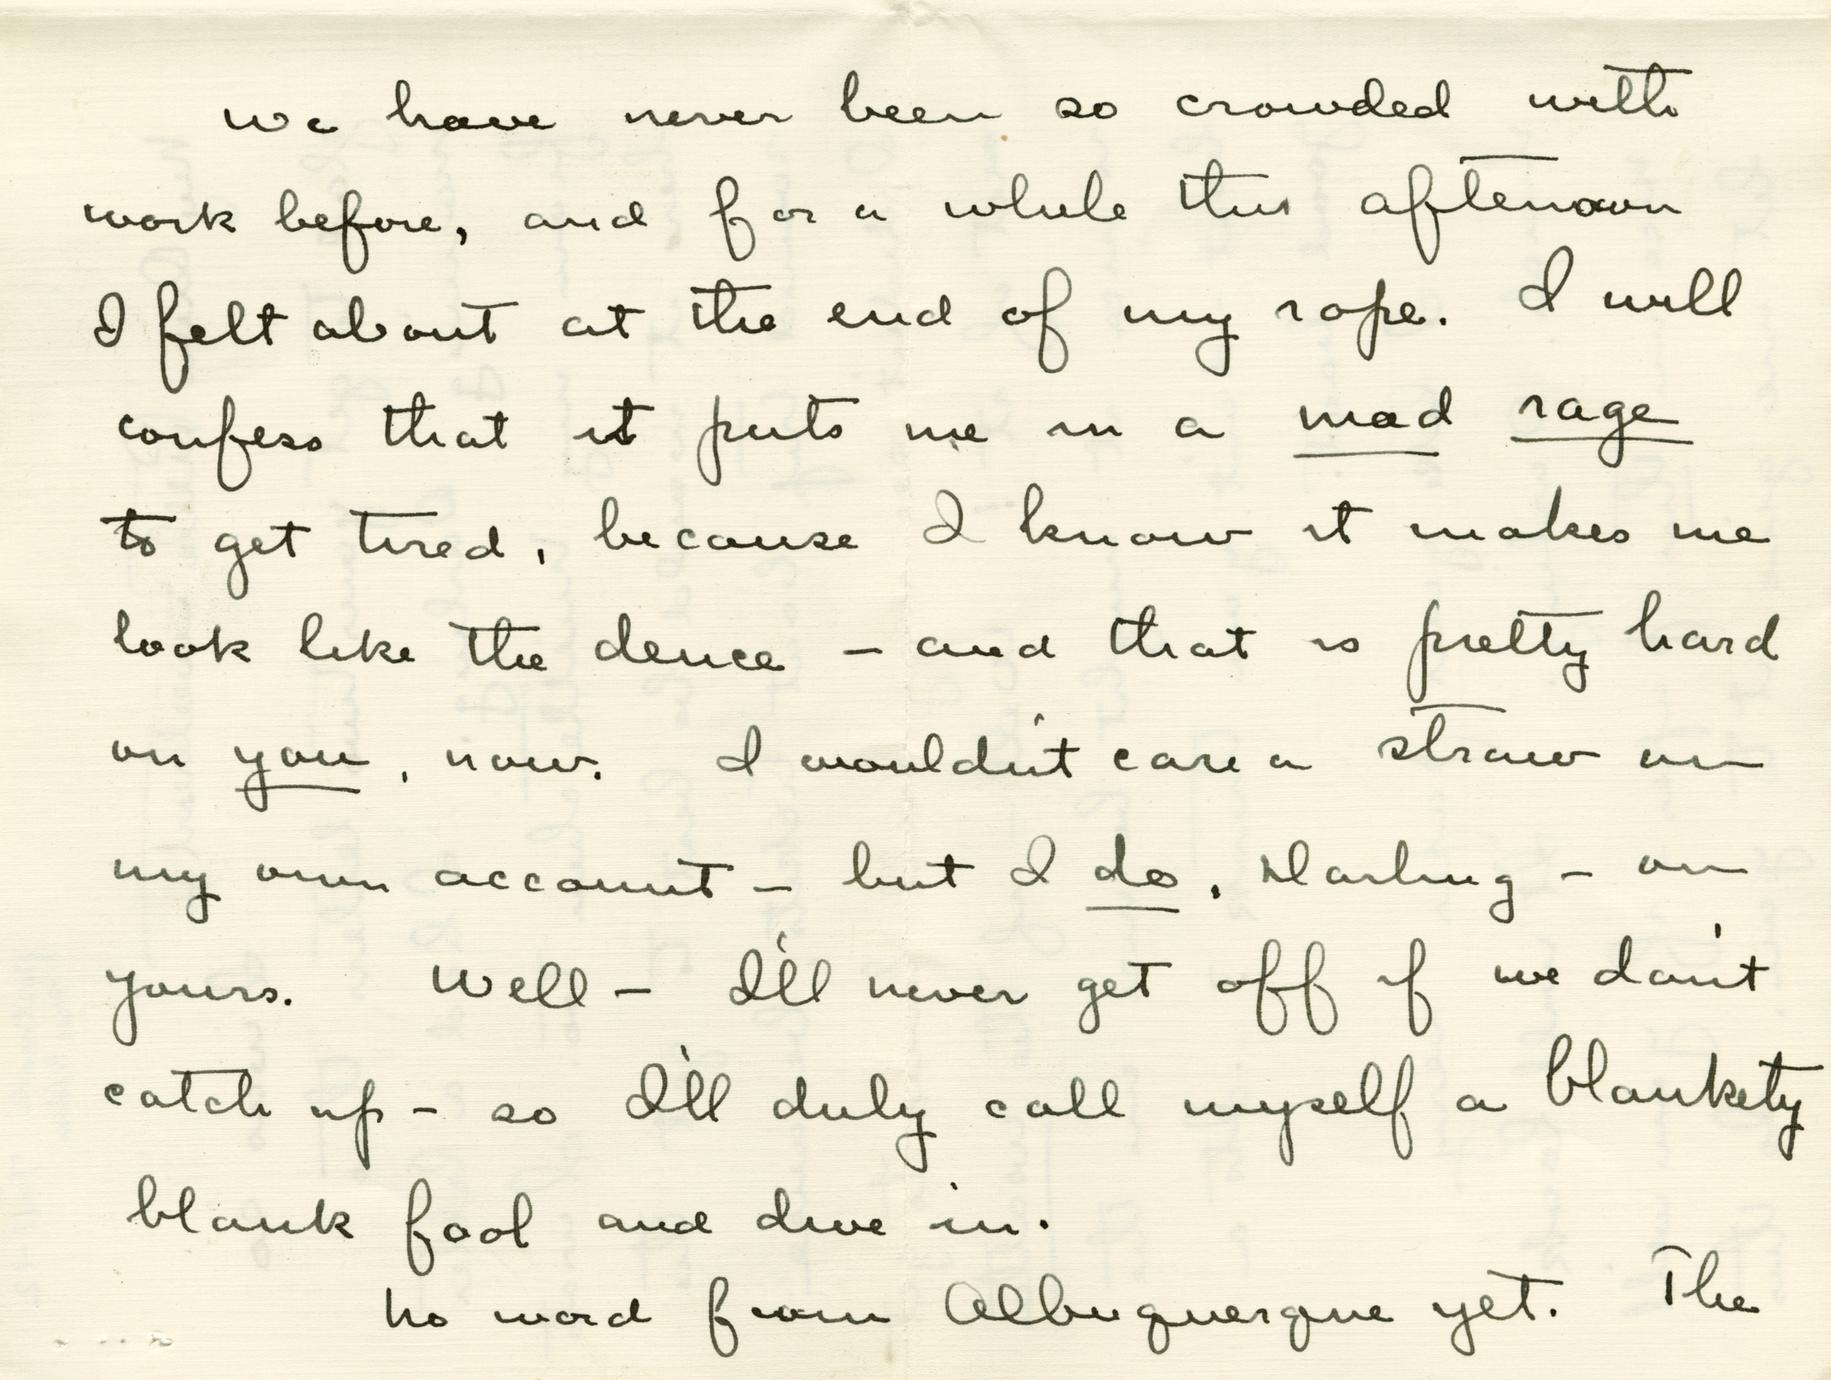 We have never been so crowded with
work before, and for a while this afternoon
I felt about at the end of my rope. I will
confess that it puts me in a mad rage
to get tired, because I know it makes me
look like the deuce – and that is pretty hard
on you, now. I wouldn't care a straw on
my own account – but I do, Darling – on
yours. Well – I'll never get off if we don't
catch up – so I'll duly call myself a blankety
blank fool and dive in.
No word from Albuquerque yet. The